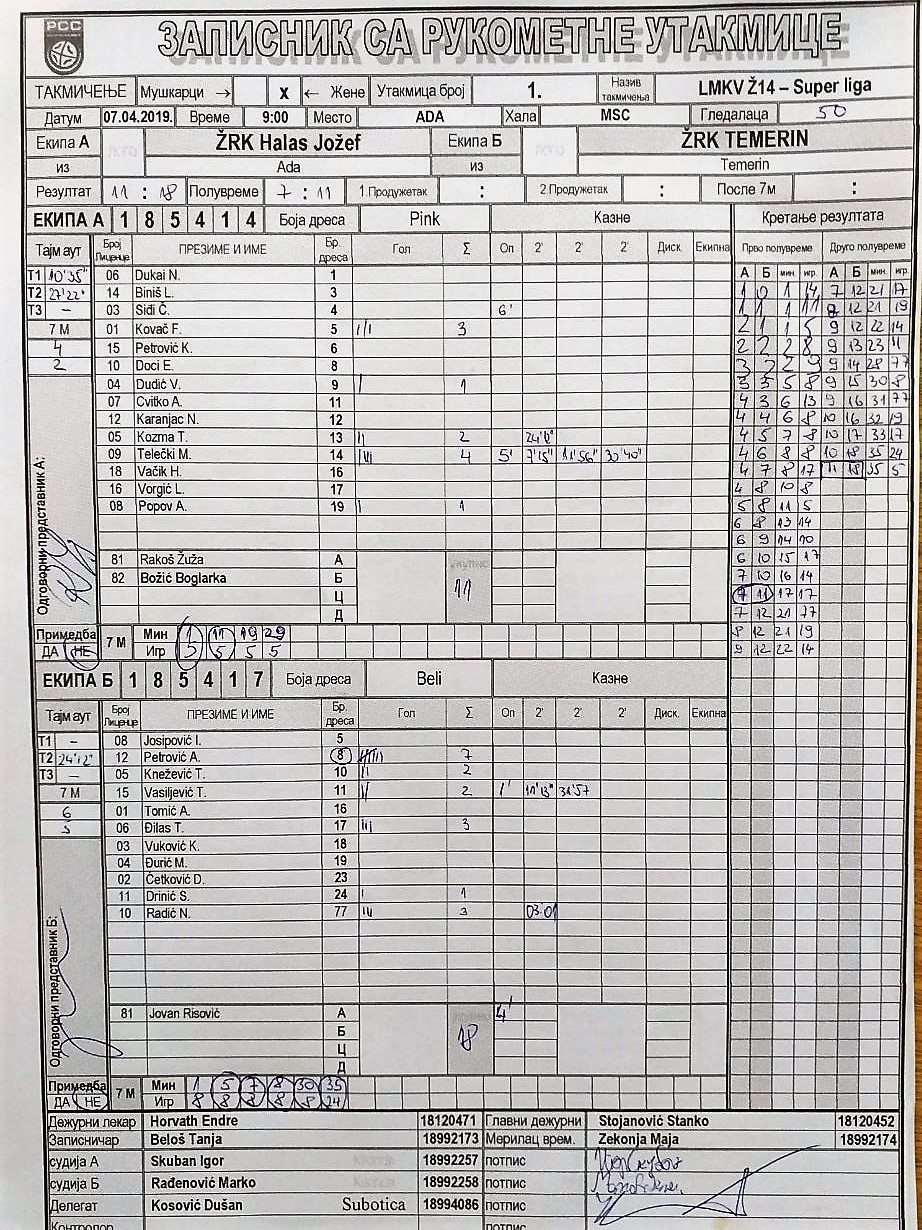 РСС
ЗАПИСНИК СА РУКОМЕТНЕ УТАКМИЦЕ
ТАКМИЧЕЊЕ Мушкарци → x ← Жене Утакмица број 1. Назив такмичења LMKV Ž14 – Super liga
Датум 07.04.2019. Време 9:00 Место ADA Хала MSC Гледалаца 50
Екипа А ŽRK Halas Jožef Екипа Б ŽRK TEMERIN
из Ada из Temerin
Резултат 11 : 18 Полувреме 7 : 11 1.Продужетак : 2.Продужетак : После 7м :
ЕКИПА А 1 8 5 4 1 4 Боја дреса Pink Казне Кретање резултата
Тајм аут Број Лиценце ПРЕЗИМЕ И ИМЕ Бр. дреса Гол Σ Оп 2' 2' 2' Диск. Екипна Прво полувреме Друго полувреме
А Б мин. игр. А Б мин. игр.
T1 10'35" 06 Dukai N. 1
T2 27'22" 14 Biniš L. 3
T3 – 03 Siđi Č. 4 6'
7 М 01 Kovač F. 5 III 3
4 15 Petrović K. 6
2 10 Doci E. 8
04 Dudić V. 9 I 1
07 Cvitko A. 11
12 Karanjac N. 12
05 Kozma T. 13 II 2
09 Telečki M. 14 IIII 4 5' 7'15" 11'56"
18 Vačik H. 16
16 Vorgić L. 17
08 Popov A. 19 I 1
81 Rakoš Žuža А укупно
82 Božić Boglarka Б 11
Ц
Д
Одговорни представник А:
1 0 1 14 7 12 21 17
1 1 1 11 8 12 21 19
2 1 1 5 9 12 22 14
2 2 2 8 9 13 23 11
3 2 2 9 9 14 28 77
3 3 5 8 9 15 30 8
4 3 6 13 9 16 31 77
4 4 6 8 10 16 32 19
4 5 7 8 10 17 33 17
4 6 8 8 10 18 35 24
4 7 8 17 11 18 35 5
4 8 10 8
5 8 11 5
6 8 13 14
6 9 14 10
6 10 15 17
7 10 16 14
7 11 17 17
7 12 21 77
8 12 21 19
9 12 22 14
Примедба 7 М Мин 1 11 19 29
ДА НЕ Игр 5 5 5 5
ЕКИПА Б 1 8 5 4 1 7 Боја дреса Beli Казне
Тајм аут Број Лиценце ПРЕЗИМЕ И ИМЕ Бр. дреса Гол Σ Оп 2' 2' 2' Диск. Екипна
T1 – 08 Josipović I. 5
T2 24'12" 12 Petrović A. 8 7
T3 – 05 Knežević T. 10 II 2
7 М 15 Vasiljević T. 11 II 2 1' 11'13" 31'57
6 01 Tomić A. 16
5 06 Đilas T. 17 III 3
03 Vuković K. 18
04 Đurić M. 19
02 Četković D. 23
11 Drinić S. 24 I 1
10 Radić N. 77 III 3 03:01
81 Jovan Risović А 4'
Б 18
Ц
Д
Одговорни представник Б:
Примедба 7 М Мин 1 5 7 8 30 35
ДА НЕ Игр 8 8 8 8 8 24
Дежурни лекар Horvath Endre 18120471 Главни дежурни Stojanović Stanko 18120452
Записничар Beloš Tanja 18992173 Мерилац врем. Zekonja Maja 18992174
судија А Skuban Igor 18992257 потпис
судија Б Rađenović Marko 18992258 потпис
Делегат Kosović Dušan Subotica 18994086 потпис
Контролор потпис